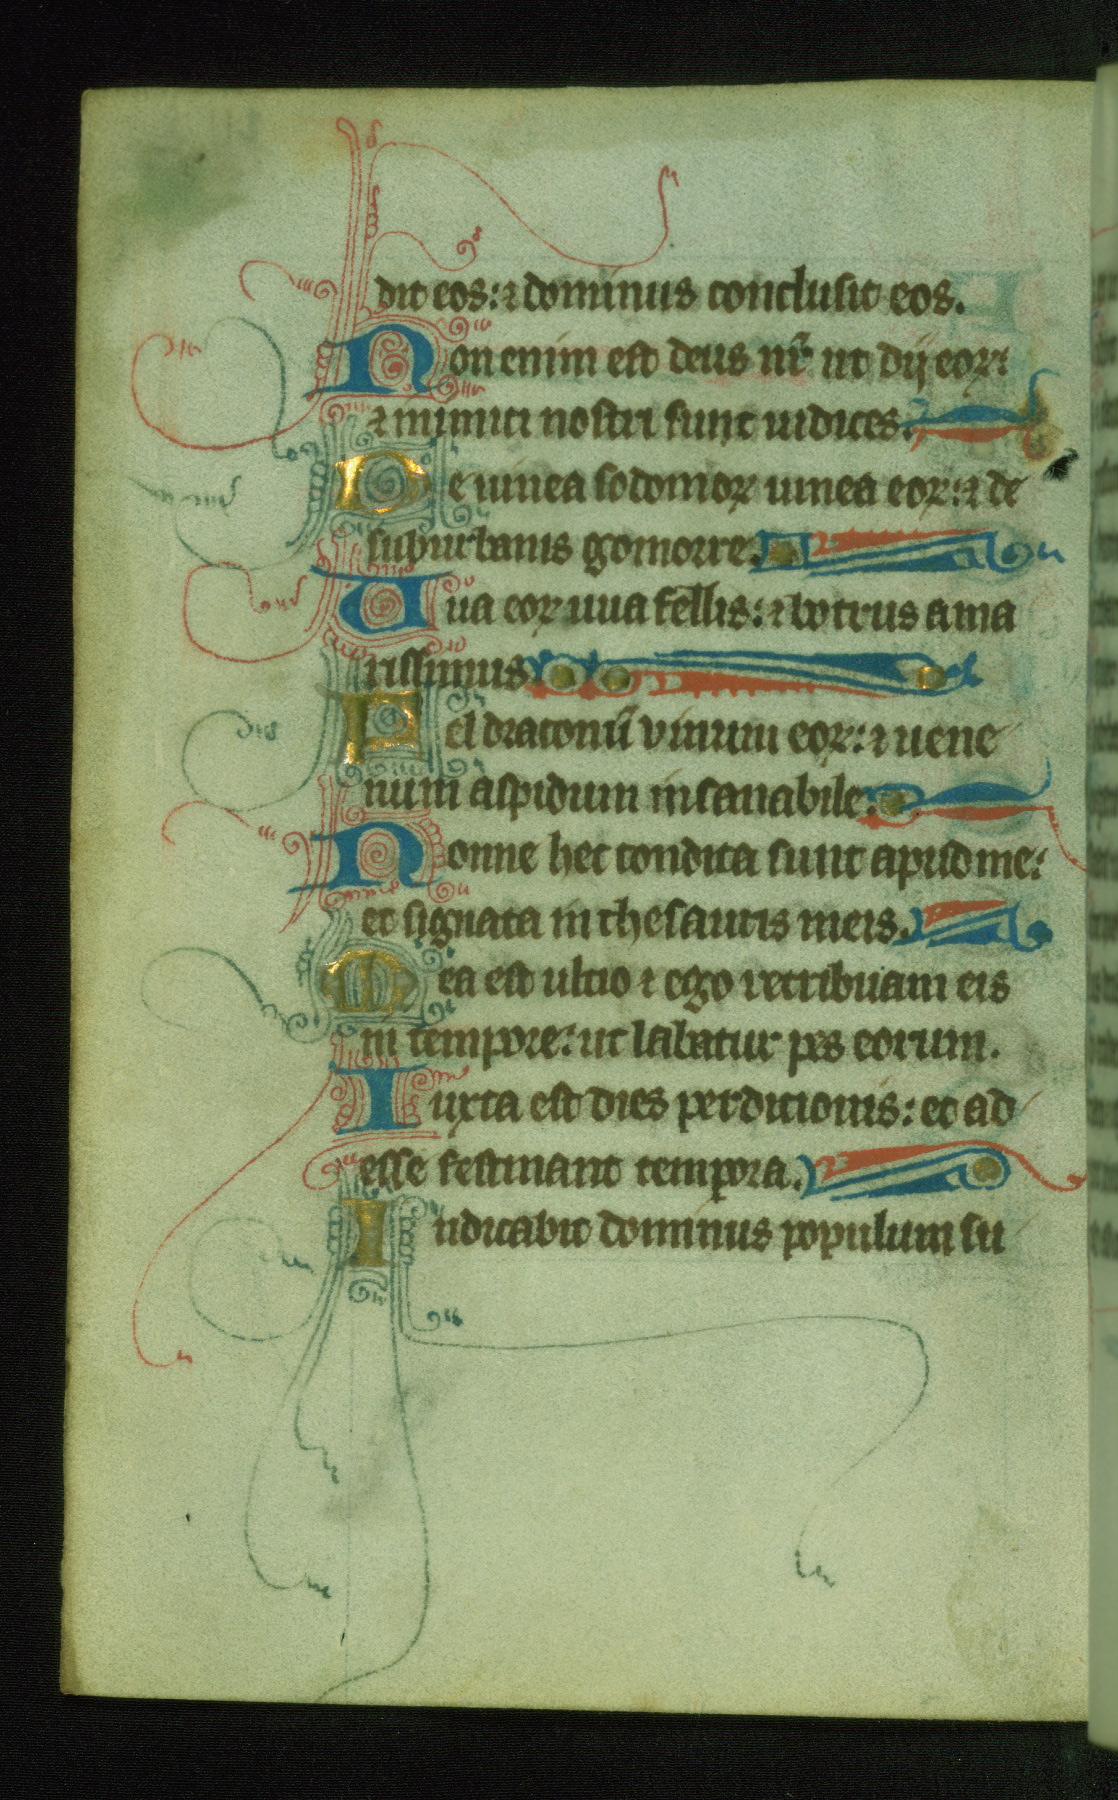 dit eos: ⁊ dominus conclusit eos.
Non enim est deus nr̄ ut dij eoꝝ:
⁊ inimici nostri sunt iudices.
De uinea sodomoꝝ uinea eoꝝ: ⁊ de
suburbanis gomorre.
Uua eoꝝ uua fellis: ⁊ botrus ama
rissimus
Fel draconū vinum eoꝝ: ⁊ uene
num aspidum insanabile.
Nonne hec condita sunt apud me:
et signata in thesauris meis.
Mea est ultio ⁊ ego retribuam eis
in tempore: ut labatur pes eorum.
Iuxta est dies perditionis: et ad
esse festinant tempora.
Iudicabit dominus populum su